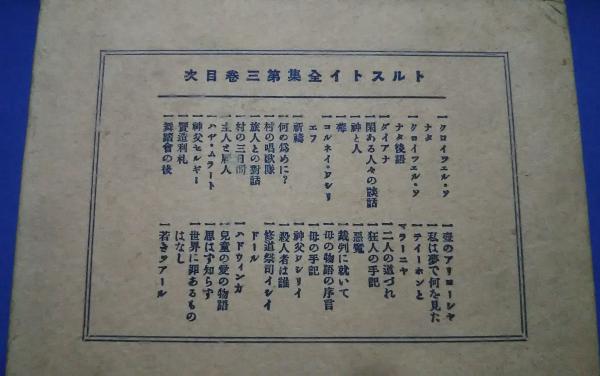 トルストイ全集第三巻目次
一クロイツェル・ソ
ナタ
一クロイツェル・ソ
ナタ後語
一ダイアナ
一閑ある人々の談話
一神と人
一苺
一コルネイ・ワシリ
エフ
一祈祷
一何の為めに？
一村の唱歌隊
一旅人との対話
一村の三日間
一主人と雇人
一ハヂ・ムラート
一神父セルギー
一贋造利札
一舞踏会の後
一壺のアリョーシャ
一私は夢で何を見た
一ティーホンと
マラーニャ
一二人の道づれ
一狂人の手記
一悪魔
一裁判に就いて
一母の物語の序言
一母の手記
一神父ワシリイ
一殺人者は誰
一修道祭司イシイ
ドール
一ハドウィンカ
一児童の愛の物語
一思はず知らず
一世界に罪あるもの
はなし
一若きツアール